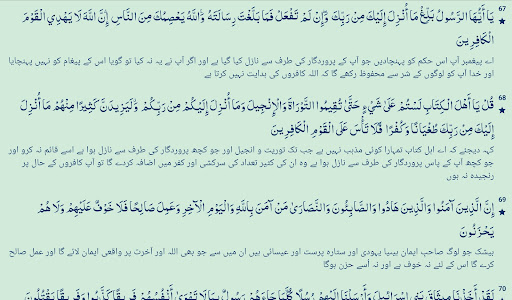 67
يَا أَيُّهَا الرَّسُولُ بَلِّغْ مَا أُنزِلَ إِلَيْكَ مِنْ رَبِّكَ وَإِنْ لَمْ تَفْعَلْ فَمَا بَلَّغْتَ رِسَالَتَهُ وَاللَّهُ يَعْصِمُكَ مِنْ النَّاسِ إِنَّ اللَّهَ لَا يَهْدِي الْقَوْمَ
الْكَافِرِينَ
اے پیغمبر آپ اس حکم کو پہنچادیں جو آپ کے پروردگار کی طرف سے نازل کیا گیا ہے اور اگر آپ نے یہ نہ کیا تو گویا اس کے پیغام کو نہیں پہنچایا
اور خدا آپ کو لوگوں کے شر سے محفوظ رکھے گا کہ اللہ کافروں کی ہدایت نہیں کرتا ہے
68
قُلْ يَا أَهْلَ الْكِتَابِ لَسْتُمْ عَلَى شَيْءٍ حَتَّى تُقِيمُوا التَّوْرَاةَ وَالْإِنجِيلَ وَمَا أُنزِلَ إِلَيْكُمْ مِنْ رَبِّكُمْ وَلَيَزِيدَنَّ كَثِيرًا مِنْهُمْ مَا أُنزِلَ
إِلَيْكَ مِنْ رَبِّكَ طُغْيَانًا وَكُفْرًا فَلَا تَأْسَ عَلَى الْقَوْمِ الْكَافِرِينَ
کہہ دیجئے کہ اے اہل کتاب تمہارا کوئی مذہب نہیں ہے جب تک توریت و انجیل اور جو کچھ پروردگار کی طرف سے نازل ہوا ہے اسے قائم نہ کرو اور
جو کچھ آپ کے پاس پروردگار کی طرف سے نازل ہوا ہے وہ ان کی کثیر تعداد کی سرکشی اور کفر میں اضافہ کردے گا تو آپ کافروں کے حال پر
رنجیدہ نہ ہوں
69
إِنَّ الَّذِينَ آمَنُوا وَالَّذِينَ هَادُوا وَالصَّابِئُونَ وَالنَّصَارَى مَنْ آمَنَ بِاللَّهِ وَالْيَوْمِ الْآخِرِ وَعَمِلَ صَالِحًا فَلَا خَوْفٌ عَلَيْهِمْ وَلَا هُمْ
يَحْزَنُونَ
بیشک جو لوگ صاحب ایمان ہیں یا یہودی اور ستارہ پرست اور عیسائی ہیں ان میں سے جو بھی اللہ اور آخرت پر واقعی ایمان لائے گا اور عمل صالح
کرے گا اس کے لئے نہ خوف ہے اور نہ اُسے حزن ہوگا
70
لَقَدْ أَخَذْنَا مِيثَاقَ بَنِي إِسْرَائِيلَ وَأَرْسَلْنَا إِلَيْهِمْ رُسُلًا كُلَّمَا جَاءَهُمْ رَسُولٌ بِمَا لَا تَهْوَى أَنْفُسُهُمْ فَرِيقًا كَذَّبُوا وَفَرِيقًا يَقْتُلُونَ